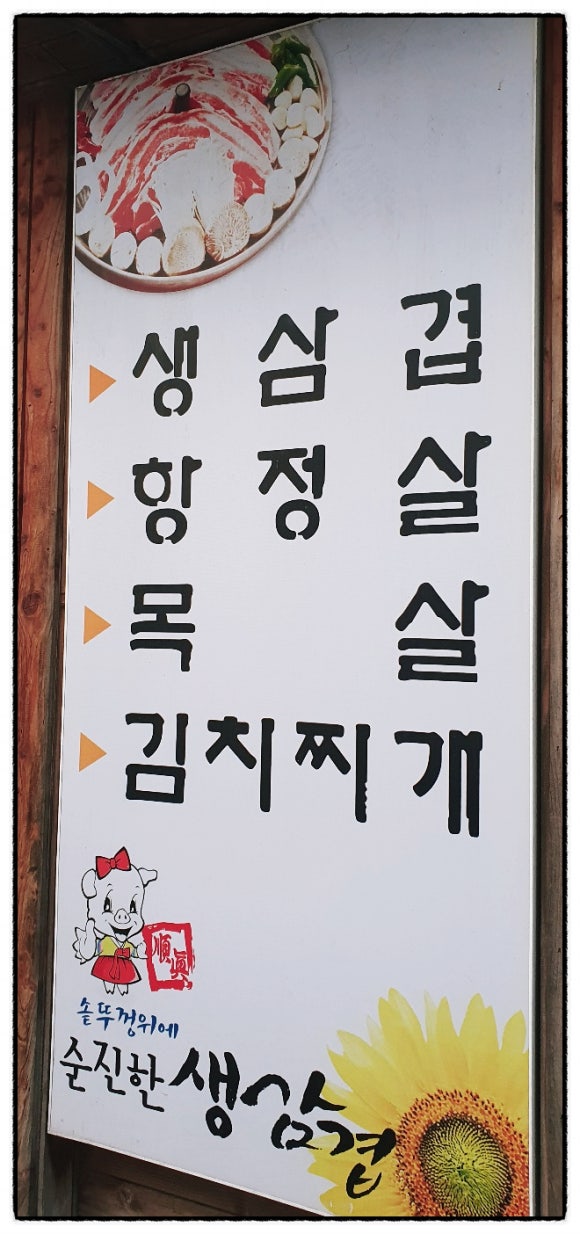 생 삼 겹
항 정 살
목 살
김치찌개
順眞
솥뚜껑위에
순진한 생삼겹